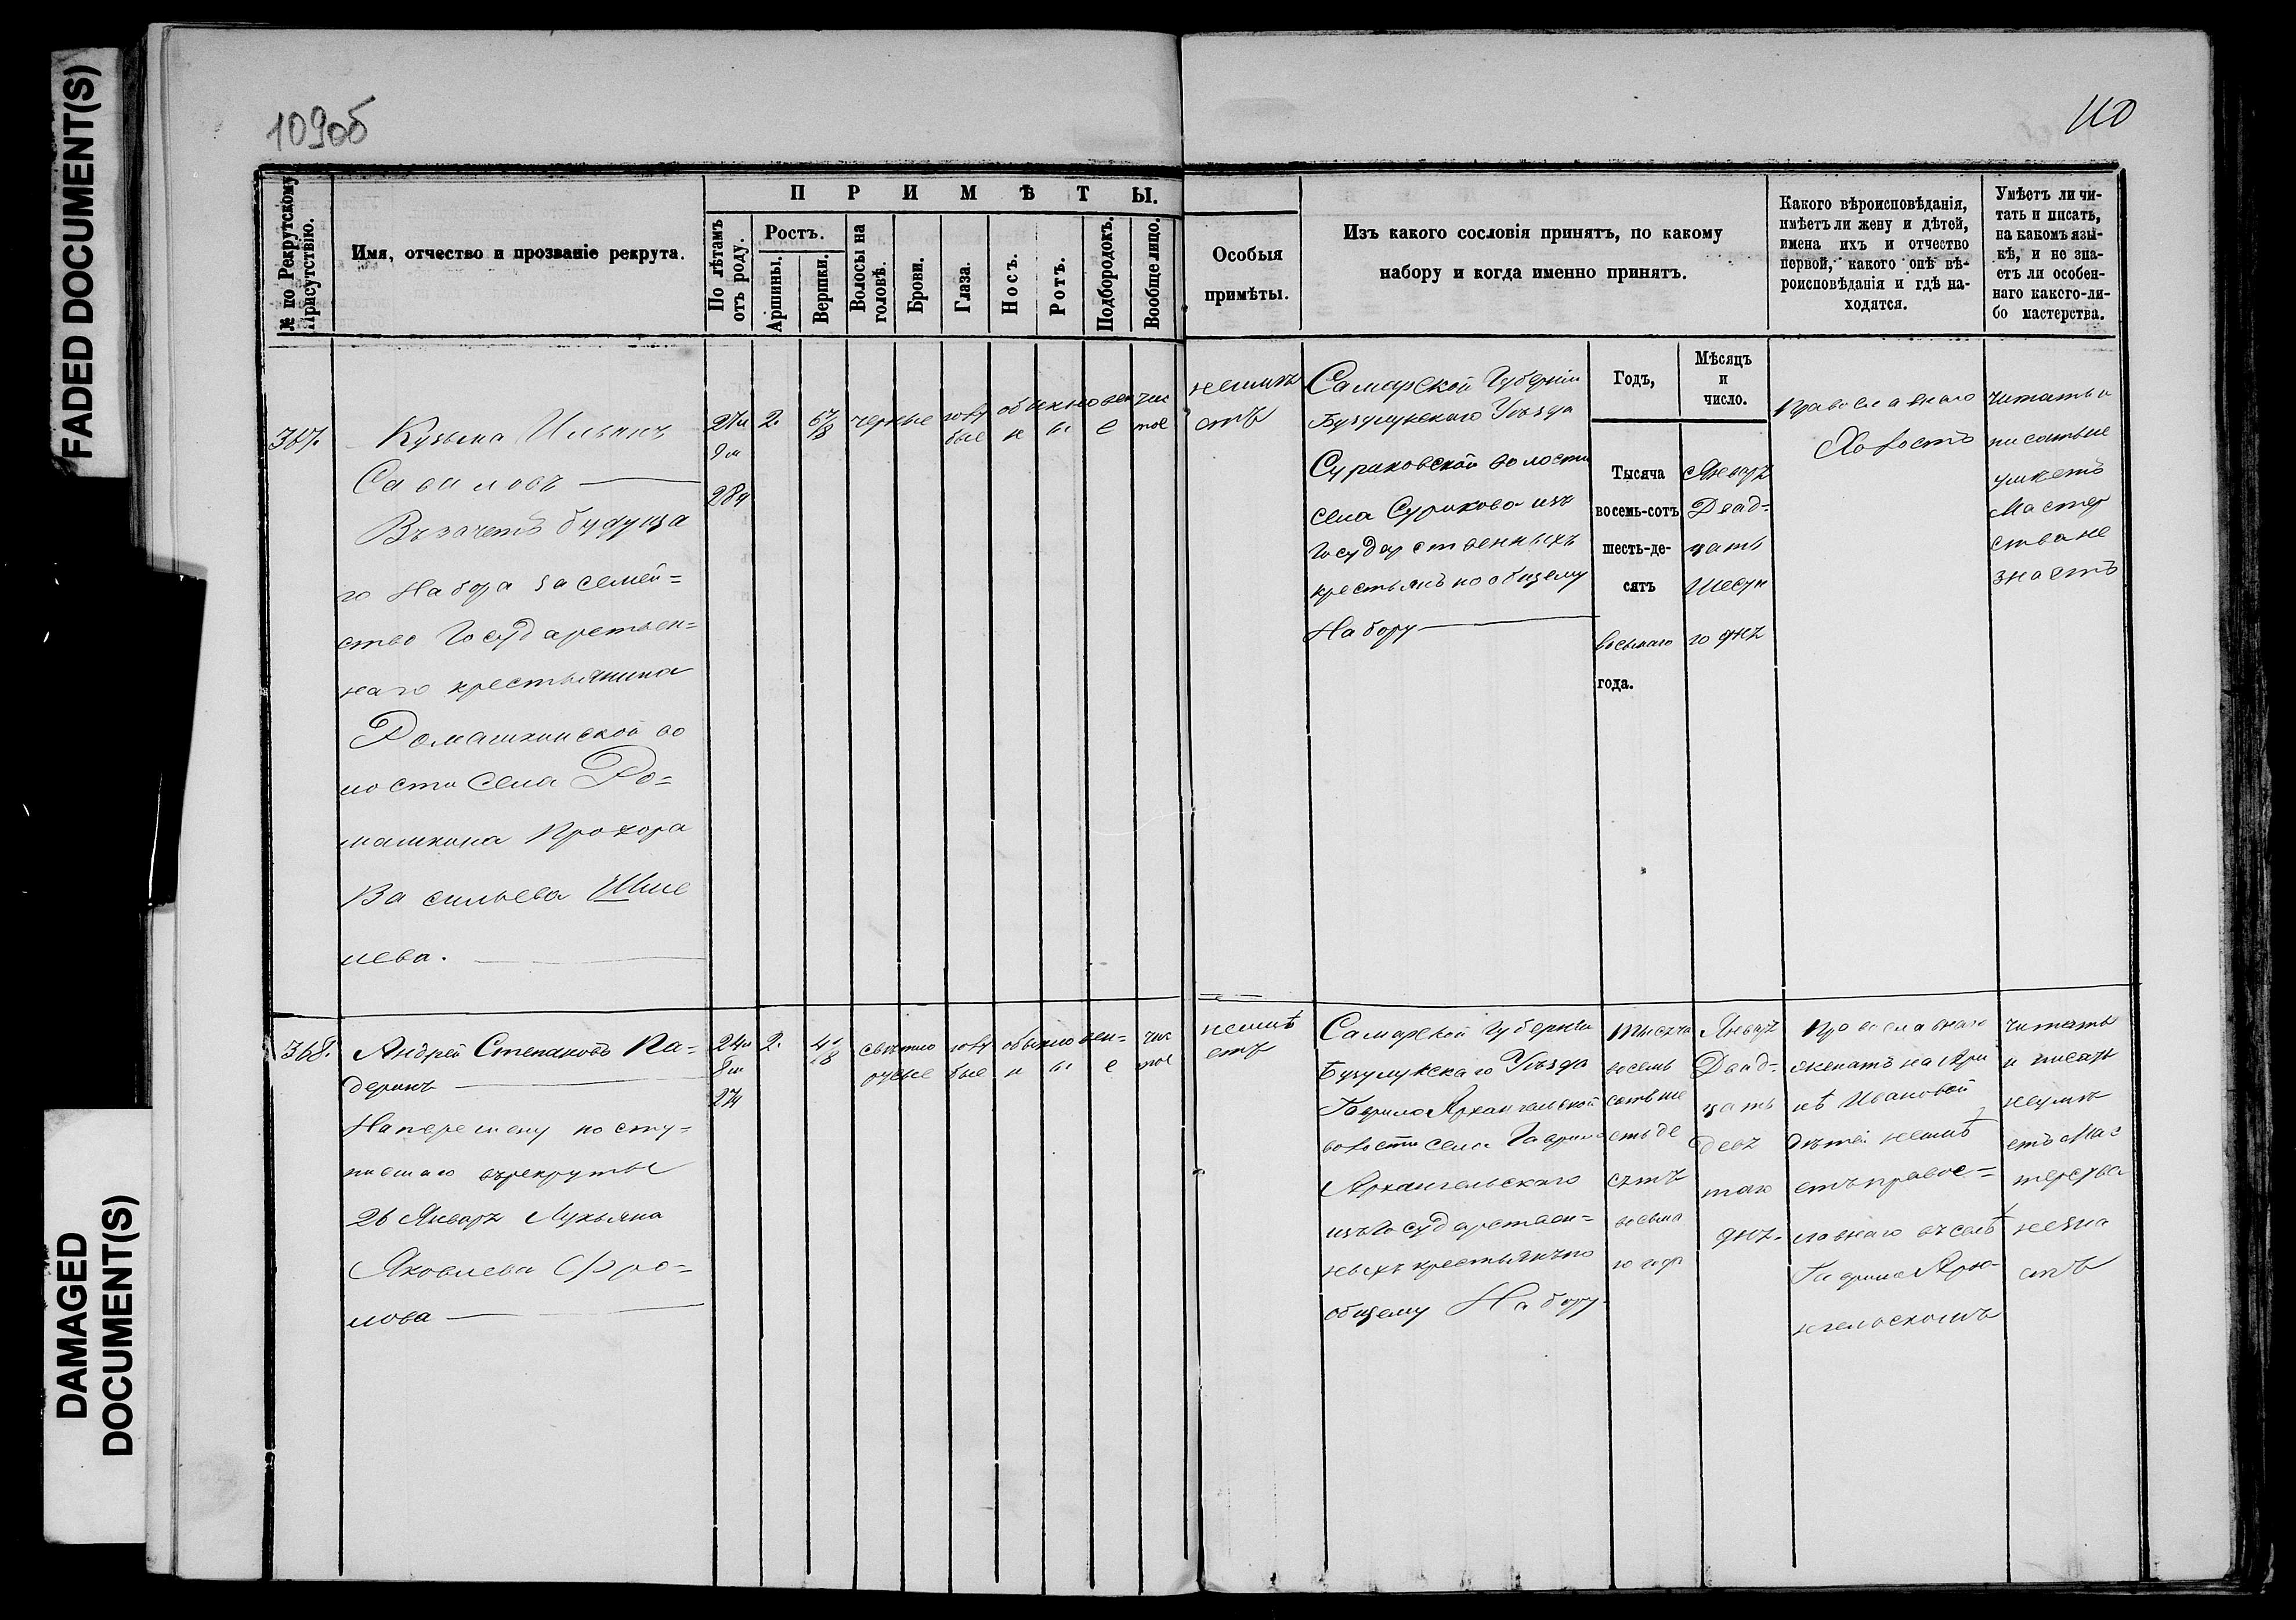 FADED DOCUMENT(S)
DAMAGED
DOCUMENT(S)
109об
110
№ по Рекрутскому
Присутствію.
Имя, отчество и прозваніе рекрута.
ПРИМѢТЫ.
По лѣтамъ
отъ роду.
Ростъ.
Аршины.
Вершки.
Волосы на
головѣ.
Брови.
Глаза.
Носъ.
Ротъ.
Подбородокъ.
Вообще лицо.
Особыя
примѣты.
Изъ какого сословія принятъ, по какому
набору и когда именно принятъ.
Какого вѣроисповѣданія,
имѣетъ ли жену и дѣтей,
имена ихъ и отчество
первой, какого онѣ вѣ-
роисповѣданія и гдѣ на-
ходятся.
Умѣетъ ли чи-
тать и писать,
на какомъ язы-
кѣ, и не зна-
етъ ли особен-
наго какого-ли-
бо мастерства.
Годъ,
Мѣсяцъ
и
число.
367.
Кузьма Ильинъ
Савиловъ
Въ зачетъ будуща
го Набора за семей=
ство Государствен=
наго крестьянина
Домашкинской во
лости села До=
машкина Прохора
Васильева Шме
лева.
2.
6 7/8
черные
голу
бые
обыкновен
н ы е
чис
тое
неимѣ
етъ
Самарской Губерніи
Бузулукскаго Уѣзда
Суриковской волости
села Сурикова изъ
Государственныхъ
крестьянъ по общему
Набору
Тысяча
восемь-сотъ
шесть-де-
сятъ
восьмаго
года.
Января
Двад=
цать
Шесто
го дня
Православнаго
Холостъ
читать и
писать не
умѣетъ
Мастер
ства не
знаетъ
368.
Андрей Степановъ Ка=
деринъ
На перемену посту=
пившаго въ рекруты
26 Января Лукьяна
Яковлева Фро=
лова
2.
4 1/8
свѣтло
русые
голу
бые
обыкновен=
н ы е
чис
тое
неимѣ
етъ
Самарской Губерніи
Бузулукскаго Уѣзда
Гаврило Архангельской
волости села Гаврило
Архангельскаго
изъ Государствен=
ныхъ крестьянъ по
общему Набору.
Тысяча
восемь
сотъ ше
стьде
сятъ
восьма
го года
Января
Двад=
цать
девя
таго
дня.
Православнаго
женатъ на Ари
нѣ Ивановой
дѣтей неимѣ
етъ правос=
лавнаго въ селѣ
Гаврило Арха
нгельскомъ
читать
и писать
неумѣ
етъ Мас
терства
незна
етъ